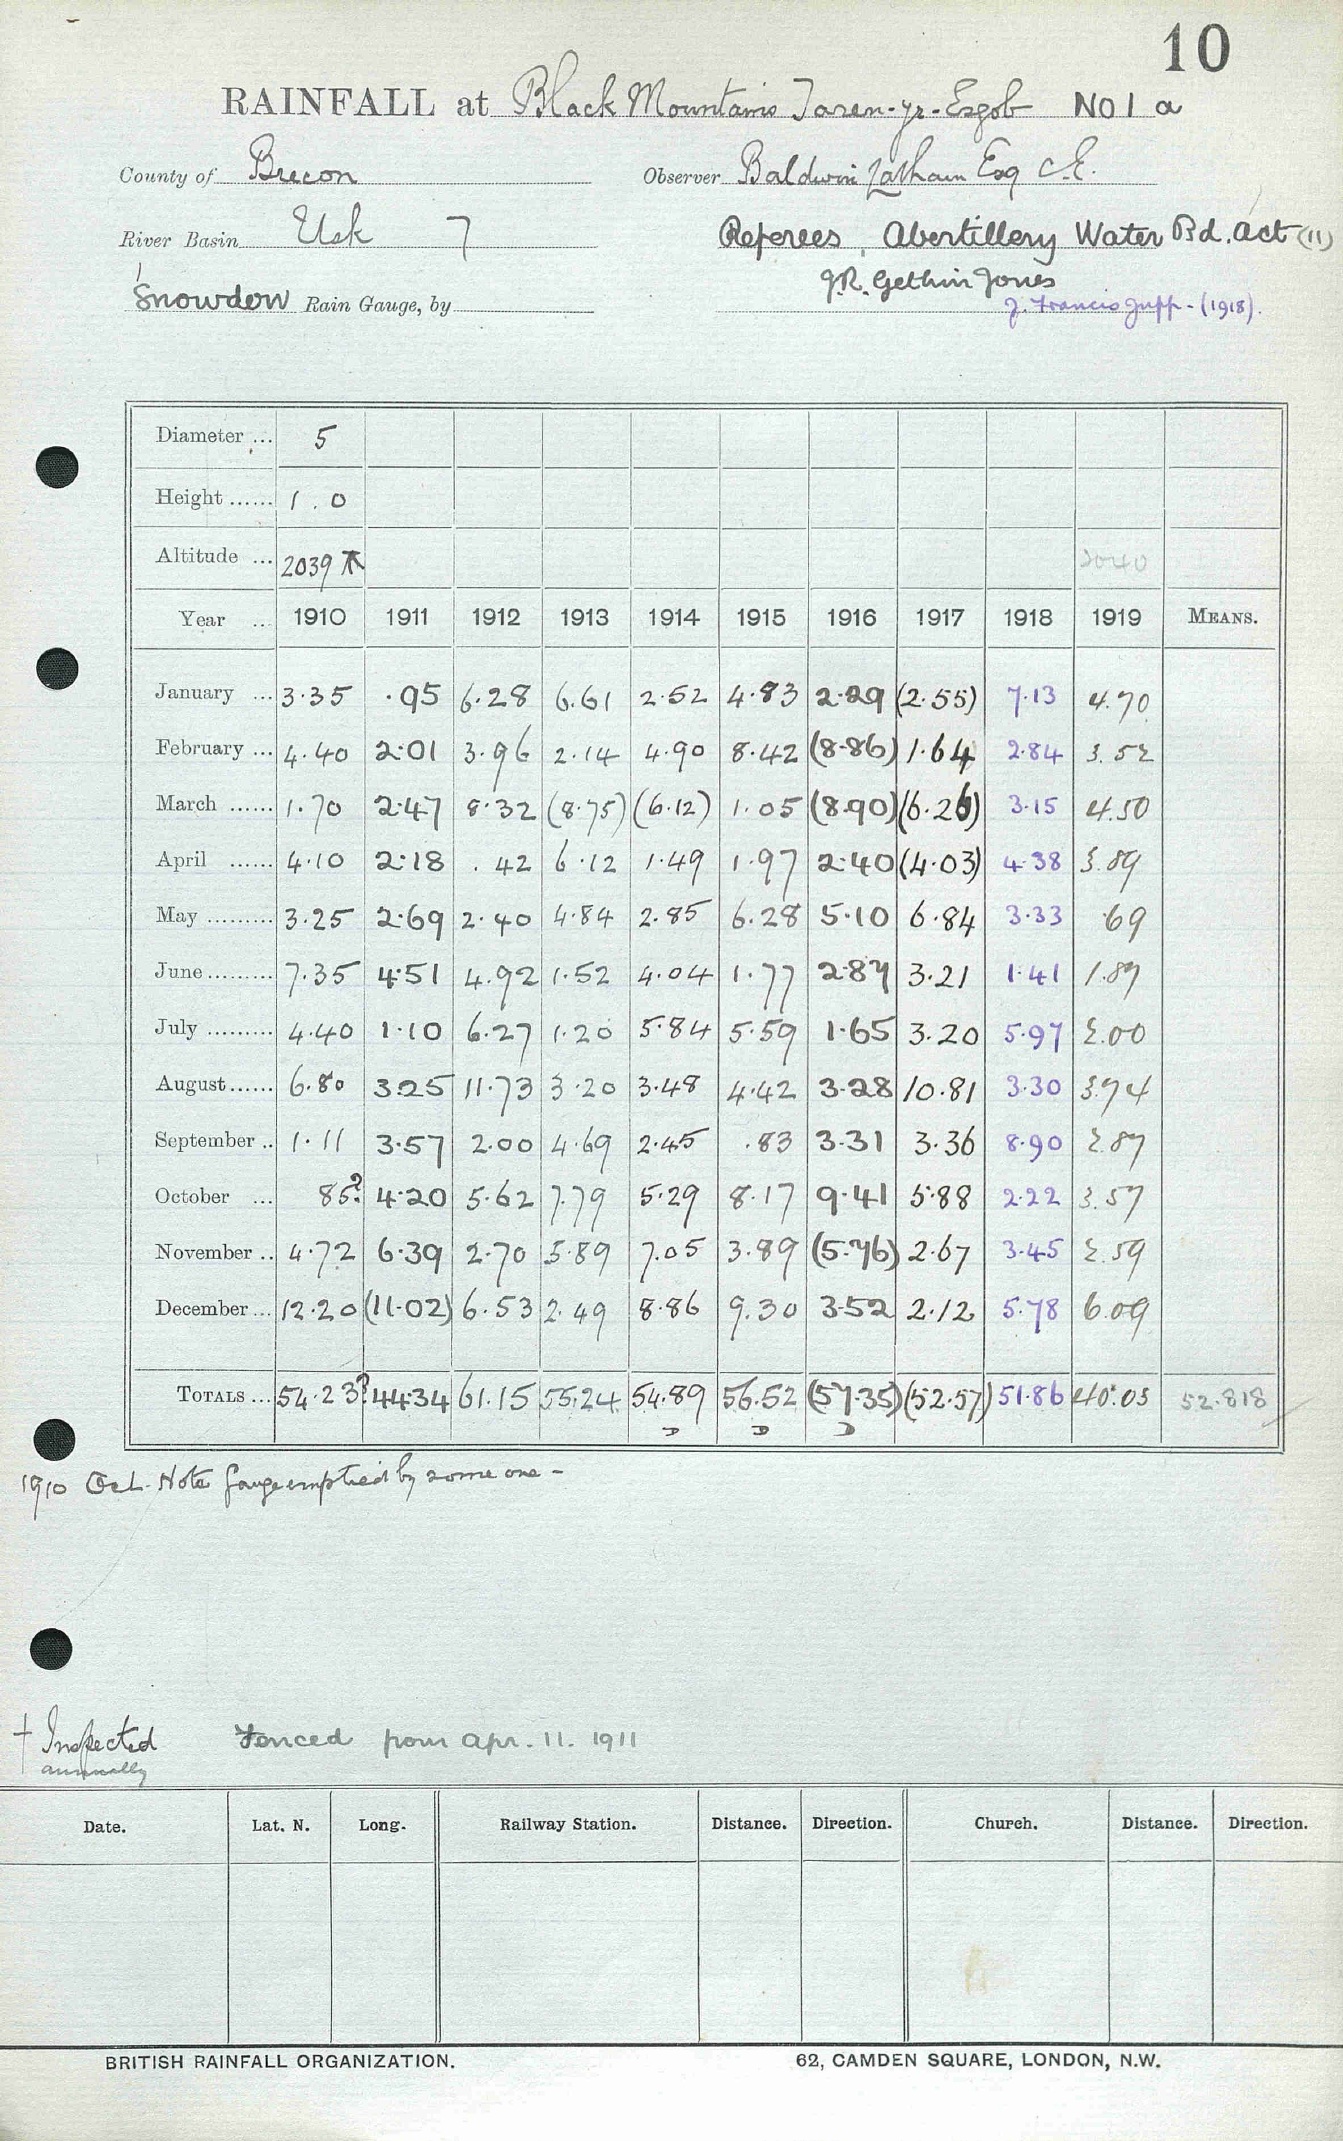 10
RAINFALL at Black Mountains Taren-yr-Esgob No 1 a
County of Brecon Observer Baldwin Latham Esq C.E.
River Basin Usk 7 Referees, Abertillery Water Bd. Act (11)
Snowdon Rain Gauge, by J.R. Gethin Jones
J. Francis Jupp - (1918).
Diameter ... 5
Height ...... 1.0
Altitude ... 2039 2040
Year ... 1910 1911 1912 1913 1914 1915 1916 1917 1918 1919 MEANS.
January ... 3.35 .95 6.28 6.61 2.52 4.83 2.29 (2.55) 7.13 4.70
February ... 4.40 2.01 3.96 2.14 4.90 8.42 (8.86) 1.64 2.84 3.52
March ...... 1.70 2.47 8.32 (8.75) (6.12) 1.05 (8.90) (6.26) 3.15 4.50
April ...... 4.10 2.18 .42 6.12 1.49 1.97 2.40 (4.03) 4.38 3.89
May ......... 3.25 2.69 2.40 4.84 2.85 6.28 5.10 6.84 3.33 .69
June ......... 7.35 4.51 4.92 1.52 4.04 1.77 2.87 3.21 1.41 1.89
July ......... 4.40 1.10 6.27 1.20 5.84 5.59 1.65 3.20 5.97 2.00
August ...... 6.80 3.25 11.73 3.20 3.48 4.42 3.28 10.81 3.30 3.74
September .. 1.11 3.57 2.00 4.69 2.45 .83 3.31 3.36 8.90 2.87
October ... 85? 4.20 5.62 7.79 5.29 8.17 9.41 5.88 2.22 3.57
November .. 4.72 6.39 2.70 5.89 7.05 3.89 (5.76) 2.67 3.45 2.59
December ... 12.20 (11.02) 6.53 2.49 8.86 9.30 3.52 2.12 5.78 6.09
TOTALS ... 54.23? 44.34 61.15 55.24 54.89 56.52 (57.35) (52.57) 51.86 40.05 52.818
1910 Oct. Note gauge emptied by some one -
† Inspected annually Fenced from Apr. 11. 1911
Date. Lat. N. Long. Railway Station. Distance. Direction. Church. Distance. Direction.
BRITISH RAINFALL ORGANIZATION. 62, CAMDEN SQUARE, LONDON, N.W.